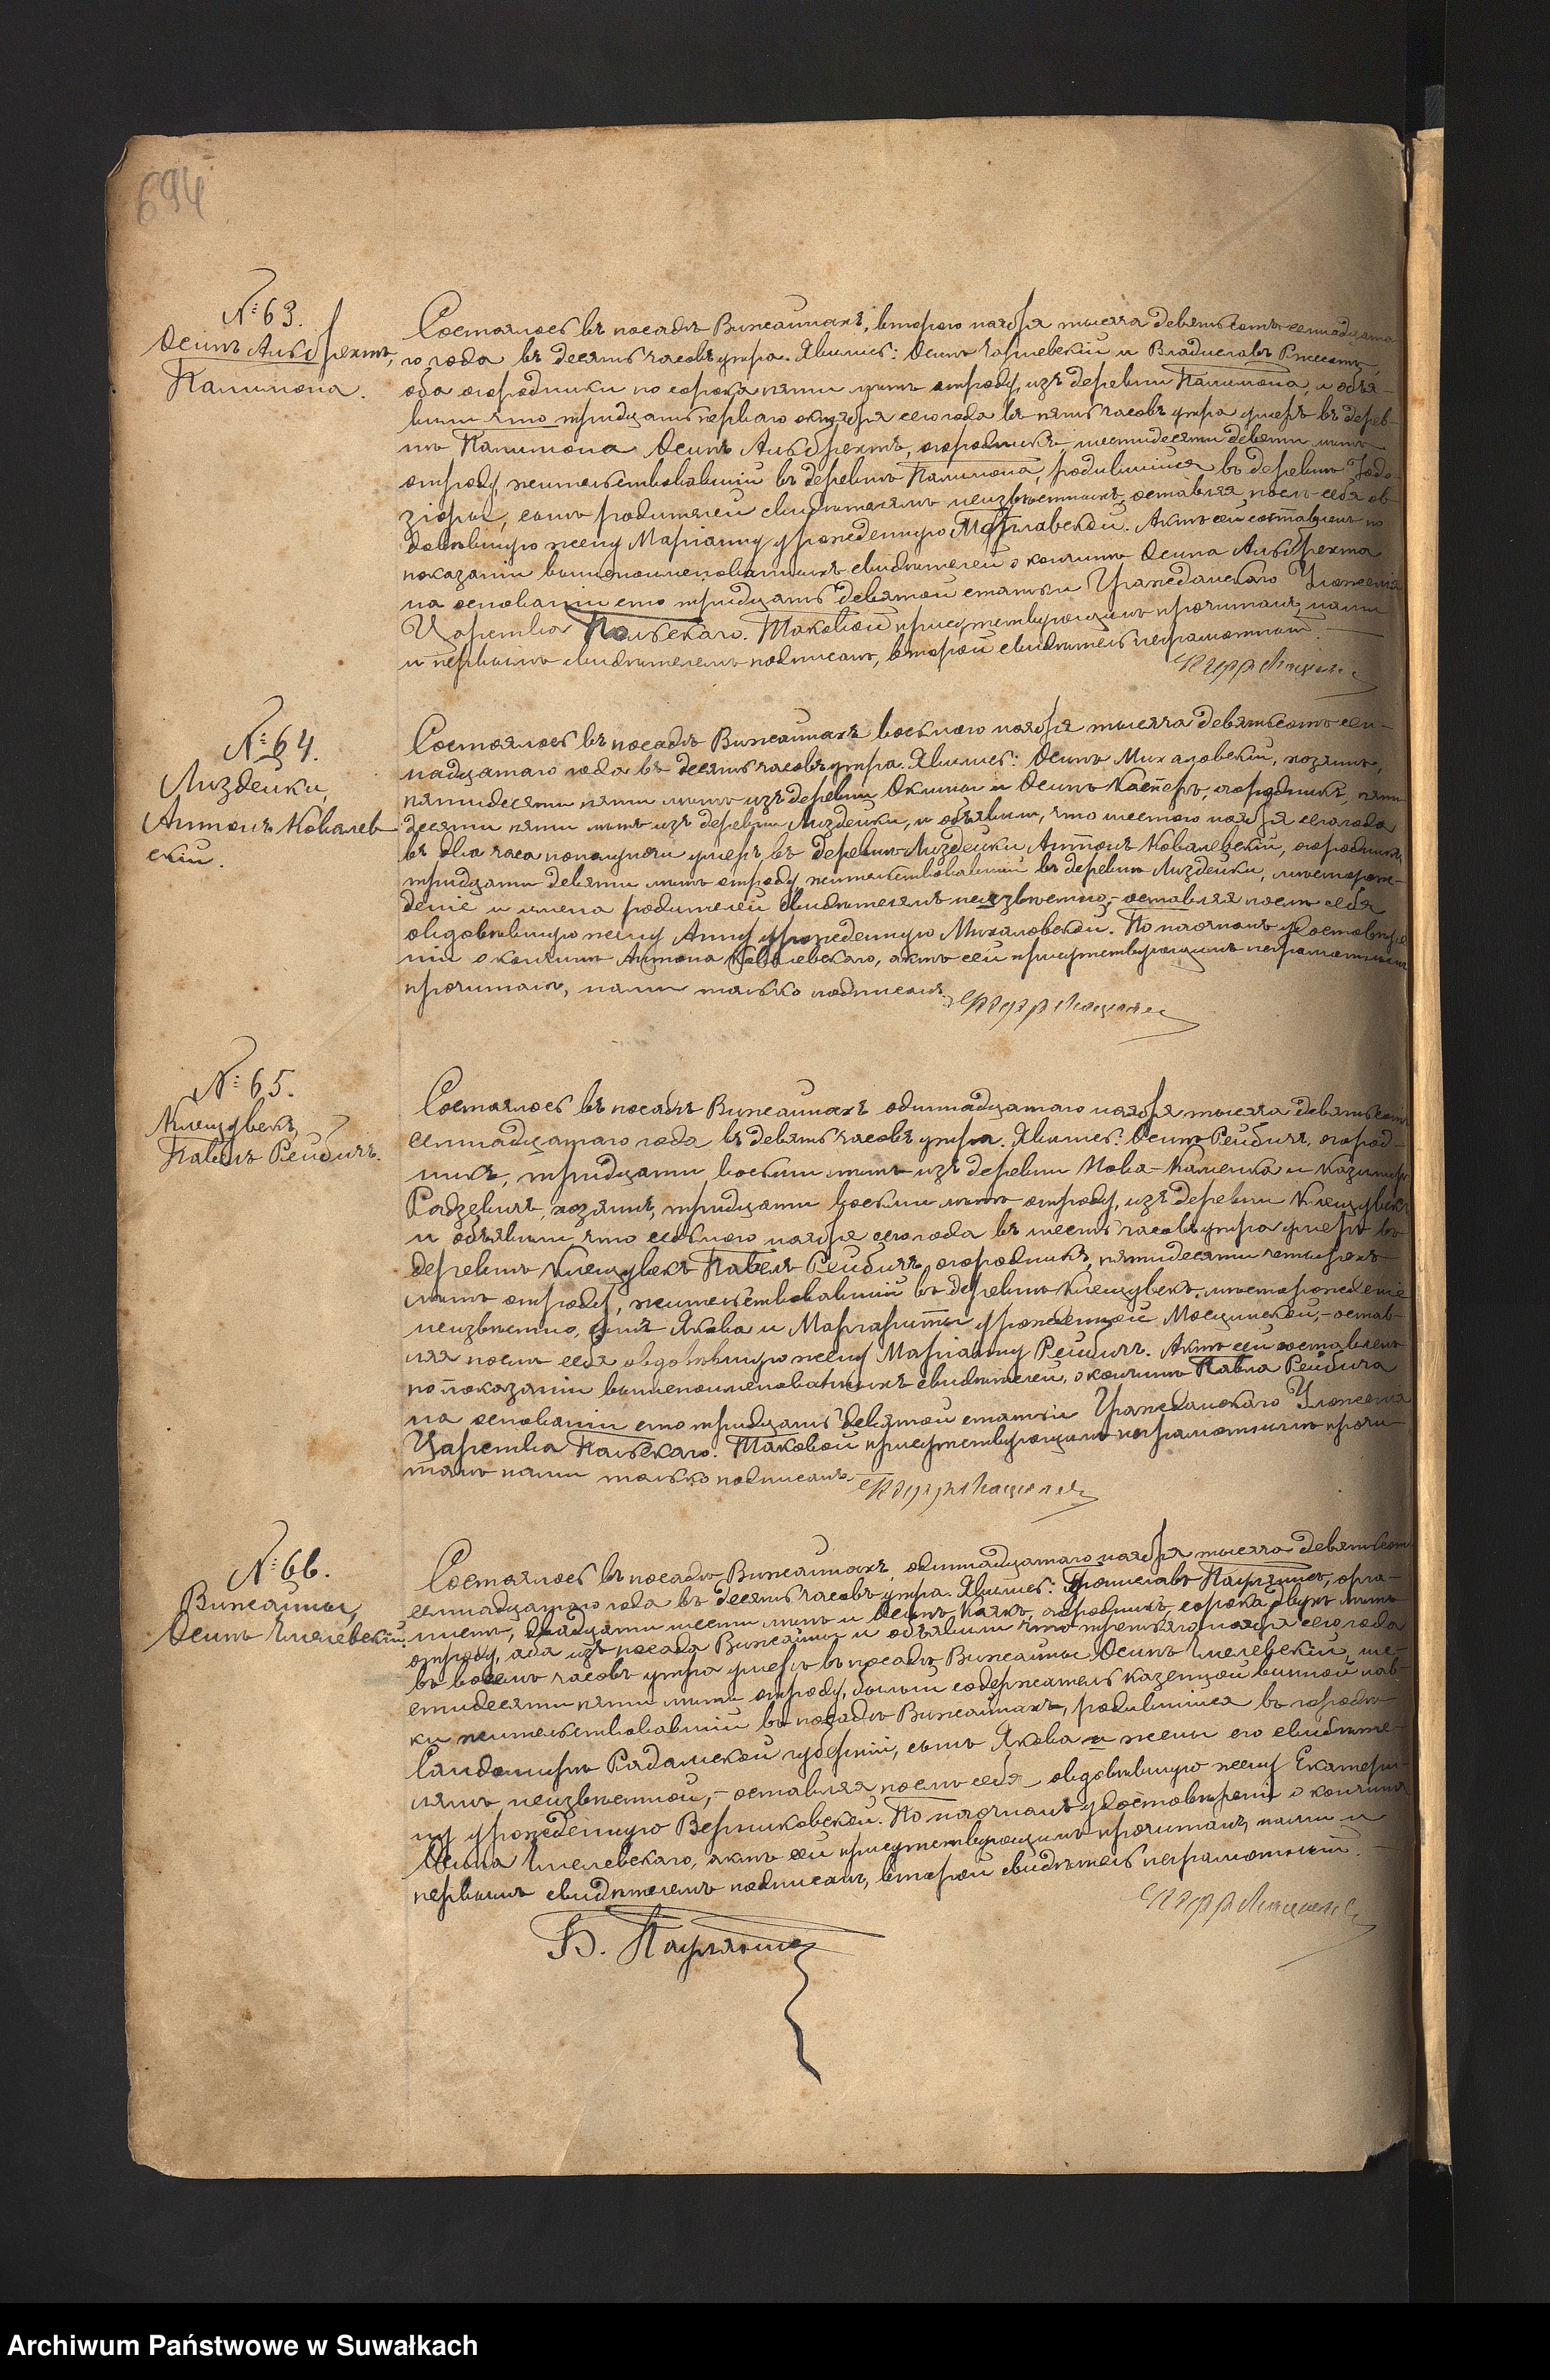 694
№ 63.
Осипъ Альбрехтъ,
Палимона.
Состоялось въ посадѣ Вижайнахъ, второго ноября тысяча девятьсотъ семнадцата-
го года, въ десять часовъ утра. Явились: Осипъ и Владиславъ
оба огородники по сорока пяти лѣтъ отроду, изъ деревни Палимона, и объя-
вили что тридцать перваго октября сего года въ пять часовъ утра умеръ въ дерев-
нѣ Палимона Осипъ Альбрехтъ, огородникъ, шестидесяти девяти лѣтъ
отроду, жительствовавшій въ деревнѣ Палимона, родившійся въ деревнѣ Іодо-
зіоры, сынъ родителей свидѣтелямъ неизвѣстныхъ, оставляя послѣ себя ов-
довѣвшую жену Маріанну урожденную. Актъ сей составленъ по
показаніи вышепоименованныхъ свидѣтелей о кончинѣ Осипа Альбрехта
на основаніи сто тридцать девятой статьи Гражданскаго Уложенія
Царства Польскаго. Таковой присутствующимъ прочитанъ, нами
и первымъ свидѣтелемъ подписанъ, второй свидѣтель неграмотный.
№ 64.
Лиздейки,
Антонъ Ковалев-
скій.
Состоялось въ посадѣ Вижайнахъ восьмого ноября тысяча девятьсотъ сем-
надцатаго года въ десять часовъ утра. Явились: Осипъ Михаловскій, хозяинъ,
пятидесяти пяти лѣтъ изъ деревни Оклины и Осипъ Касперъ, огородникъ, пяти-
десяти пяти лѣтъ изъ деревни Лиздейки, и объявили, что шестого ноября сего года
въ два часа пополуночи умеръ въ деревнѣ Лиздейки Антонъ Ковалевскій, огородникъ
тридцати девяти лѣтъ отроду, жительствовавшій въ деревнѣ Лиздейки, мѣсторож-
деніе и имена родителей свидѣтелямъ неизвѣстно,- оставляя послѣ себя
овдовѣвшую жену Анну урожденную Михаловской. По наочномъ удостовѣре-
ніи о кончинѣ Антона Ковалевскаго, актъ сей присутствующимъ неграмотнымъ
прочитанъ, нами только подписанъ.
№ 65.
Клещувекъ,
Павелъ Рейбичъ.
Состоялось въ посадѣ Вижайнахъ одиннадцатаго ноября тысяча девятьсотъ
семнадцатаго года въ девять часовъ утра. Явились: Осипъ Рейбичъ, огород-
никъ, тридцати восьми лѣтъ изъ деревни Нова-Каменка и Казиміръ
Радзевичъ, хозяинъ, тридцати восьми лѣтъ отроду, изъ деревни Клещувекъ
и объявили что седьмого ноября сего года въ шесть часовъ утра умеръ въ
деревнѣ Клещувекъ Павелъ Рейбичъ, огородникъ, пятидесяти четырехъ
лѣтъ отроду, жительствовавшій въ деревнѣ Клещувекъ, мѣсторожденіе
неизвѣстно, сынъ Якова и Маргариты урожденной,- остав-
ляя послѣ себя овдовѣвшую жену Маріанну Рейбичъ. Актъ сей составленъ
по показаніи вышепоименованныхъ свидѣтелей, о кончинѣ Павла Рейбича
на основаніи сто тридцать девятой статьи Гражданскаго Уложенія
Царства Польскаго. Таковой присутствующимъ неграмотнымъ прочи-
танъ нами только подписанъ.
№ 66.
Вижайны,
Осипъ Хмелевскій.
Состоялось въ посадѣ Вижайнахъ, одиннадцатаго ноября тысяча девятьсотъ
семнадцатаго года въ десять часовъ утра. Явились: Брониславъ, орга-
нистъ, двадцати шести лѣтъ и Осипъ, огородникъ, сорока двухъ лѣтъ
отроду, оба изъ посада Вижайны и объявили что третьяго ноября сего года
въ восемь часовъ утра умеръ въ посадѣ Вижайны Осипъ Хмелевскій, ше-
стидесяти пяти лѣтъ отроду, бывый содержатель казенной винной лав-
ки жительствовавшій въ посадѣ Вижайнахъ, родившійся въ городѣ
Сандомирѣ Радомской губерніи, сынъ Якова и жены его свидѣте-
лямъ неизвѣстной,- оставляя послѣ себя овдовѣвшую жену Екатери-
ну урожденную Верниковской. По наочномъ удостовѣреніи о кончинѣ
Осипа Хмелевскаго, актъ сей присутствующимъ прочитанъ, нами и
первымъ свидѣтелемъ подписанъ, второй свидѣтель неграмотный.
Archiwum Państwowe w Suwałkach